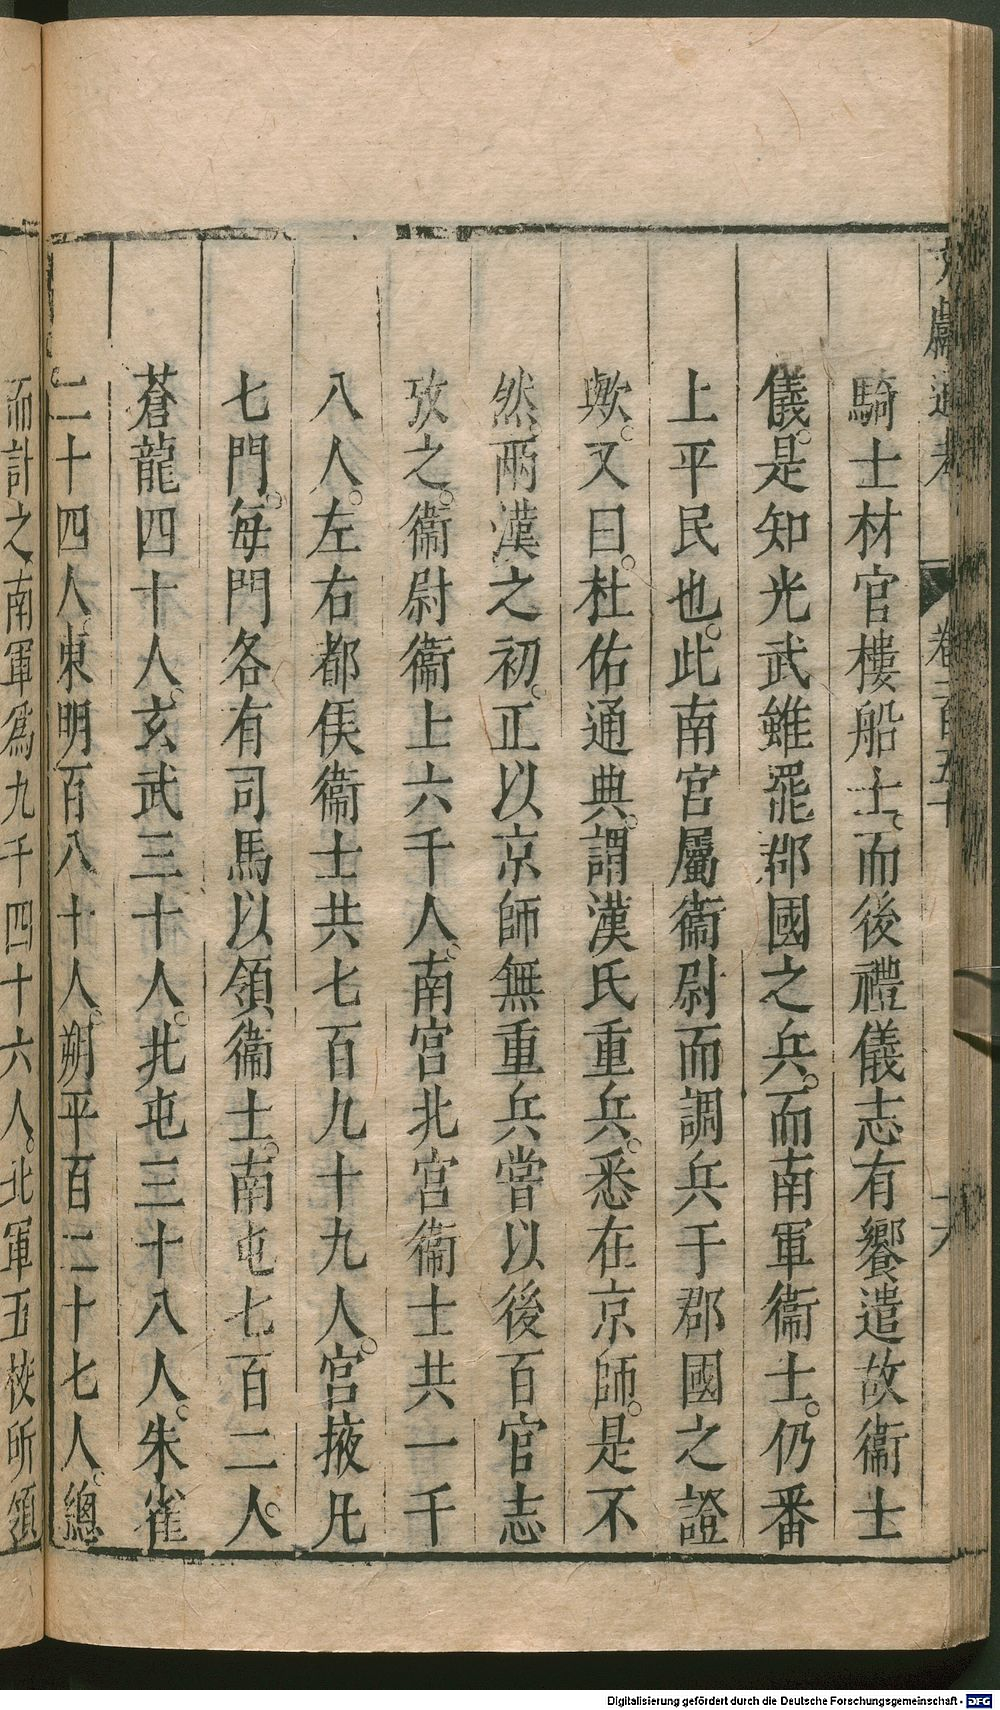 文獻通考 卷一百五十 十六
騎士材官樓船士。而後禮儀志有饗遣故衞士
儀。是知光武雖罷郡國之兵。而南軍衞士。仍番
上平民也。此南宮屬衞尉而調兵于郡國之證
歟。又曰。杜佑通典。謂漢氏重兵。悉在京師。是不
然。兩漢之初。正以京師無重兵。嘗以後百官志
攷之。衞尉衞上六千人。南宮北宮衞士共一千
八人。左右都侯衞士共七百九十九人。宮掖凡
七門。每門各有司馬以領衞士。南屯七百二人。
蒼龍四十人。玄武三十人。北屯三十八人。朱雀
二十四人。東明百八十人。朔平百二十七人。總
而計之。南軍爲九千四十六人。北軍五校所領
Digitalisierung gefördert durch die Deutsche Forschungsgemeinschaft - DFG